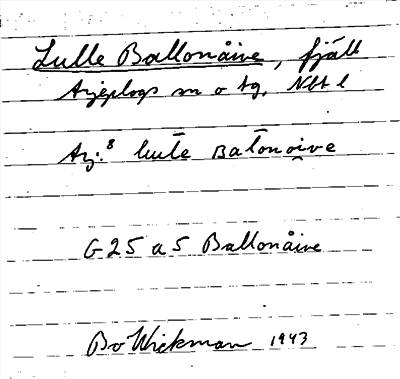 Lulle Ballonåive, fjäll
Arjeplogs sn o tg, Nbt l
Arj.⁸ lūt̄e ʙat̄onoi̭ve
G 25 a 5 Ballonåive
Bo Wickman 1943